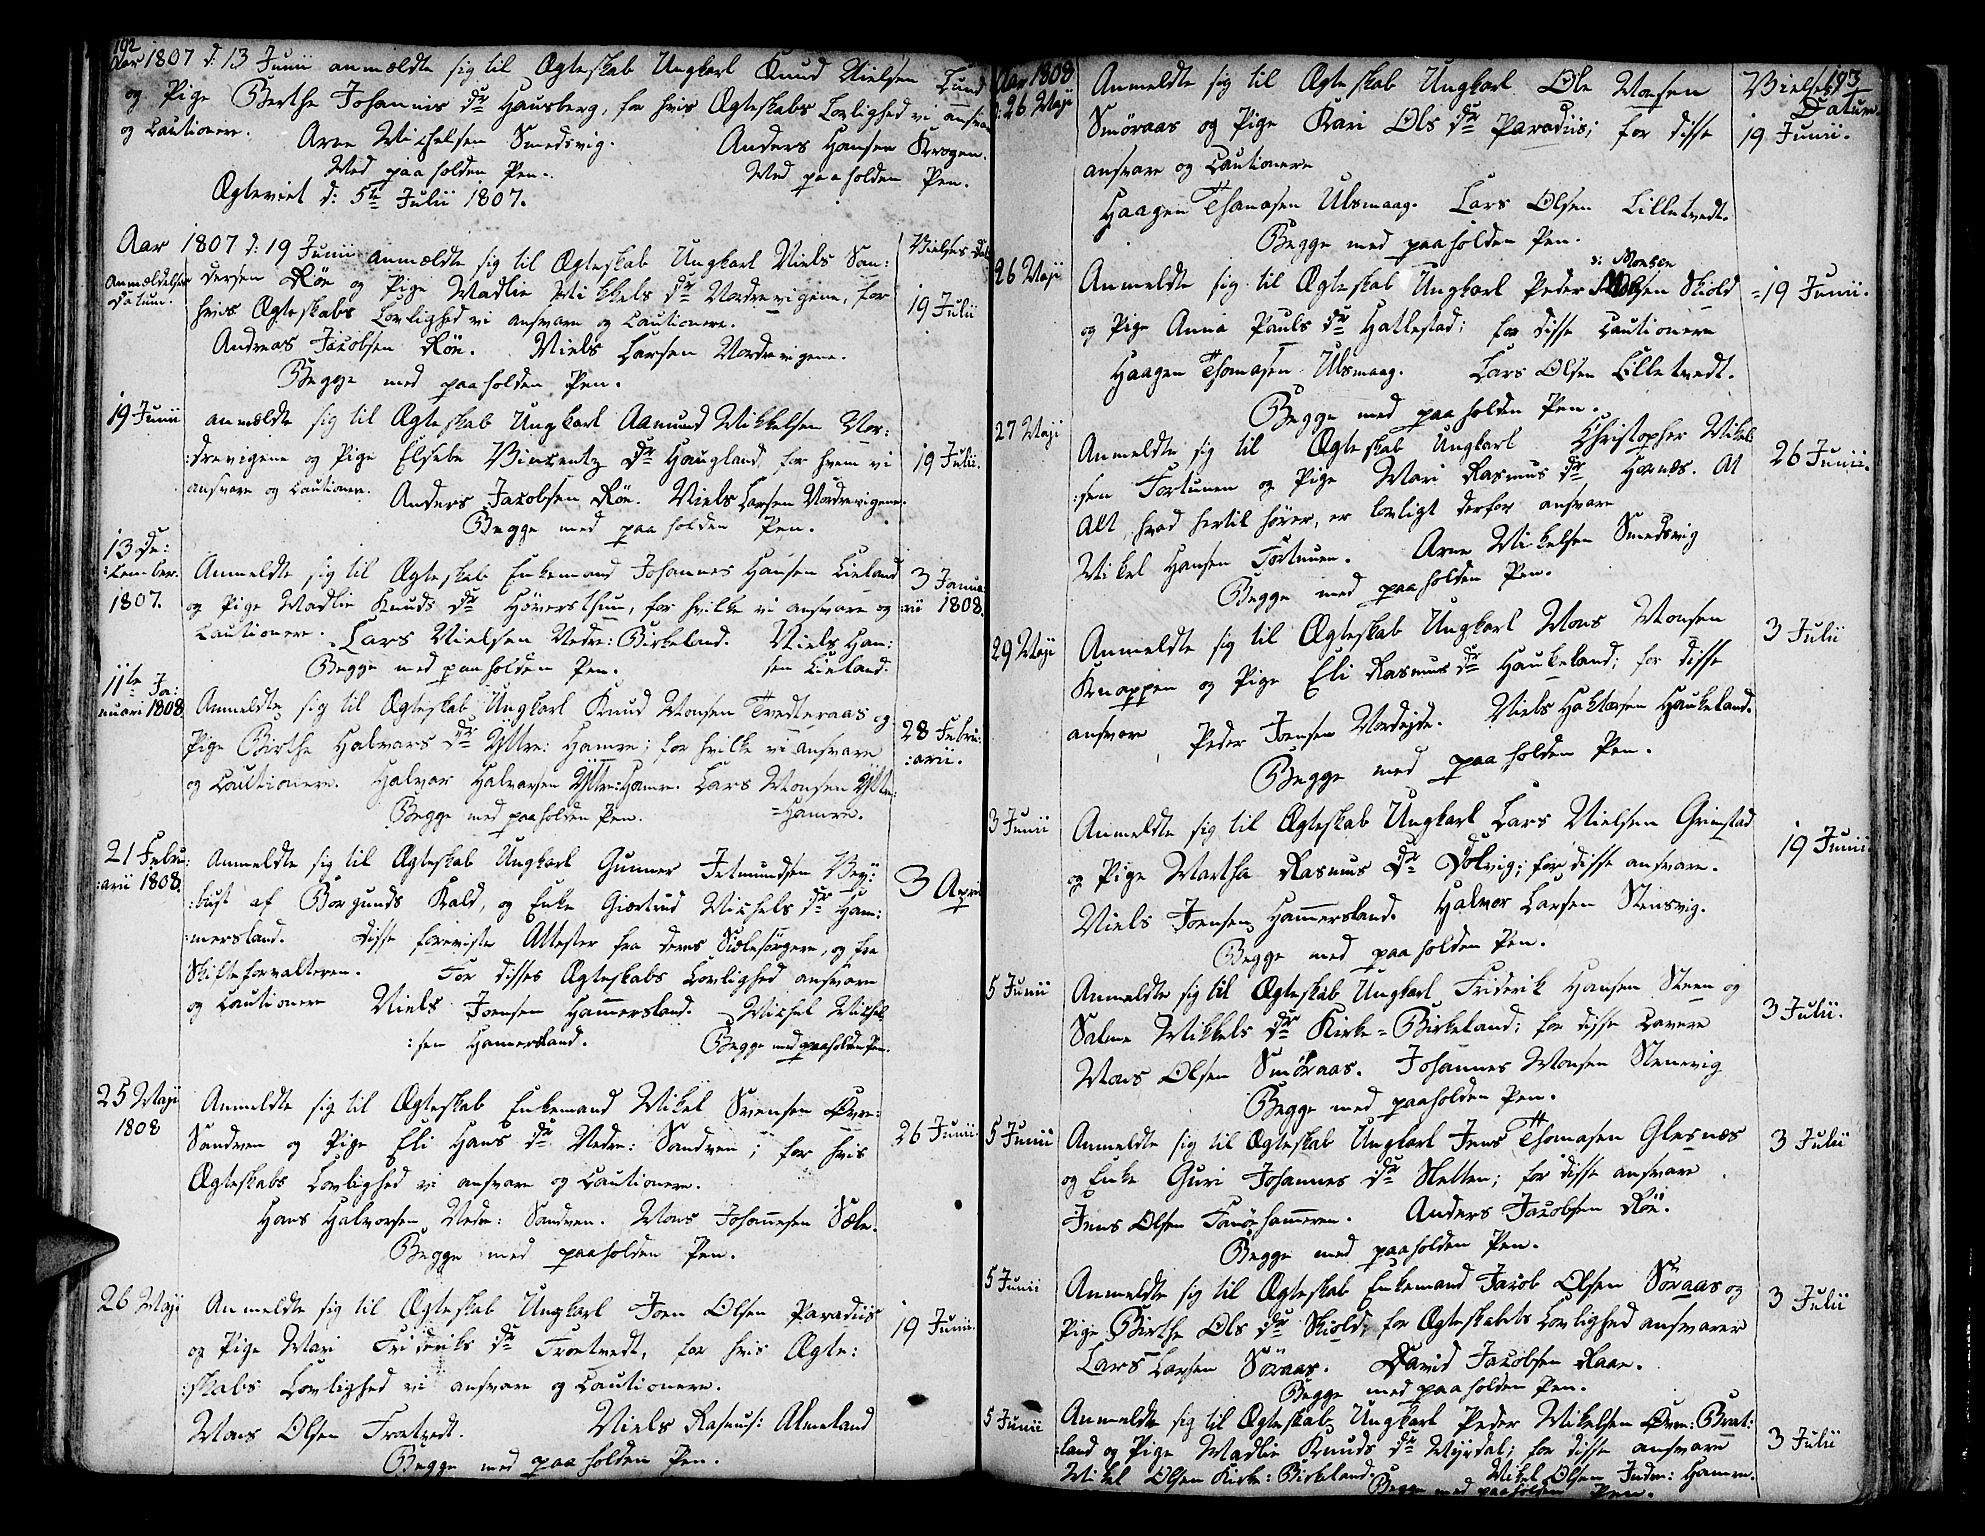 192
Aar 1807 d: 13 Junii anmældte sig til Ægteskab Ungkarl Knud Nielsen Lund
og Pige Berthe Johannis dr Hausberg, for hvis Ægteskabs Lovlighed vi ansvare
og Cautionere. Arne Michelsen Smedsvig. Anders Hansen Krogen.
Med paaholden Pen. Med paaholden Pen.
Ægteviet d: 5te Julii 1807.
Aar 1807 d: 19 Junii anmældte sig til Ægteskab Ungkarl Niels San:
Vielses Dat
Anmældelses Datum.
dersen Röe og Pige Madlie Mikkels dr Nordrevigene, for
hvis Ægteskabs Lovlighed vi ansvare og Cautionere.
19 Julii
Andreas Jacobsen Röe. Niels Larsen Nordrevigene.
Begge med paaholden Pen.
19 Junii
anmældte sig til Ægteskab Ungkarl Aamund Mikkelsen Nor:
:drevigene og Pige Elsebe Vincentz dr Haugland, for hvem vi
19 Julii.
ansvare og Cautionere. Anders Jacobsen Röe. Niels Larsen Nordrevigene.
Begge med paaholden Pen.
13 De:
:cember.
1807.
Anmeldte sig til Ægteskab Enkemand Johannes Hansen Lieland
og Pige Madlie Knuds dr Höversthun, for hvilke vi ansvare og
3 Janua
:rii 1808.
Cautionere. Lars Nielsen Nedre: Birkeland. Niels Han:
Begge med paaholden Pen. sen Lieland.
11te Ja:
nuari 1808
Anmeldte sig til Ægteskab Ungkarl Knud Monsen Tvedteraas og
Pige Birthe Halvars dr Yttre: Hamre; for hvilke vi ansvare
28 Febru:
:arii.
og Cautionere. Halvor Halvorsen Yttre: Hamre. Lars Monsen Yttre:
Begge med paaholden Pen. =Hamre.
21 Febru:
:arii 1808.
Anmeldte sig til Ægteskab Ungkarl Gunner Jetmundsen Bey:
:bust af Borgunds Kald, og Enke Giærtrud Michels dr Ham:
3 April
:mersland. Disse foreviste Attester fra deres Siælesörgere, og fra
Skifteforvalteren. For disses Ægteskabs Lovlighed ansvare
og Cautionere Niels Joensen Hamersland. Michel Michel
:sen Hamersland. Begge med paaholden Pen.
25 Maji
1808
Anmeldte sig til Ægteskab Enkemand Mikel Svensen Övre:
Sandven og Pige Eli Hans dr Nedre: Sandven; for hvis
26 Junii.
Ægteskabs Lovlighed vi ansvare og Cautionere.
Hans Halvorsen Nedre: Sandven. Mons Johannesen Sæle.
Begge med paaholden Pen.
26 Maji
Anmeldte sig til Ægteskab Ungkarl Joen Olsen Paradiis
og Pige Mari Frideriks dr Trætvedt, for hvis Ægte:
19 Junii.
:skabs Lovlighed vi ansvare og Cautionere.
Mons Olsen Trætvedt. Niels Rasmus: Almeland
Begge med paaholden Pen.
193
Aar 1808
d: 26 Maji
Anmeldte sig til Ægteskab Ungkarl Ole Olsen
Vielses
Datum.
Smöraas og Pige Kari Ols dr Paradiis; for disse
19 Junii.
ansvare og Cautionere
Haagen Thomasen Ulsmaag. Lars Olsen Lilletvedt.
Begge med paaholden Pen.
26 Maji
: Monsen
Anmeldte sig til Ægteskab Ungkarl Peder Skiold
=19 Junii.
og Pige Anna Pauls dr Hatlestad; for disse Cautionere
Haagen Thomasen Ulsmaag. Lars Olsen Lilletvedt.
Begge med paaholden Pen.
27 Maji
Anmeldte sig til Ægteskab Ungkarl Christopher Mikel
:sen Fortunen og Pige Mari Rasmus dr Hornæs. At
26 Junii.
Alt, hvad hertil hörer, er lovligt derfor ansvare
Mikel Hansen Fortunen. Arne Mikelsen Smedsvig
Begge med paaholden Pen.
29 Maji
Anmeldte sig til Ægteskab Ungkarl Mons Monsen
3 Julii
Knappen og Pige Eli Rasmus dr Haukeland; for disse
ansvare Peder Joensen Nordejde. Niels Haktorsen Haukeland.
Begge med paaholden Pen.
3 Junii
Anmeldte sig til Ægteskab Ungkarl Lars Nielsen Grimstad
19 Junii
og Pige Martha Rasmus dr Dolvig; for disse ansvare.
Niels Joensen Hammersland. Halvor Larsen Stensvig.
Begge med paaholden Pen.
5 Junii
Anmeldte sig til Ægteskab Ungkarl Friderik Hansen Steen og
3 Julii.
Salme Mikkels dr Kirke=Birkeland; for disse Cavere
Mons Olsen Smöraas. Johannes Monsen Stenevig
Begge med paaholden Pen.
5 Junii
Anmeldte sig til Ægteskab Ungkarl Jens Thomasen Glesnæs
3 Julii
og Enke Guri Johannes dr Sletten; for disse ansvare
Jens Olsen Fanöehameren. Anders Jacobsen Röe.
Begge med paaholden Pen.
5 Junii
Anmeldte sig til Ægteskab Enkemand Jacob Olsen Söraas og
3 Julii
Pige Birthe Ols dr Skiold, for Ægteskabets Lovlighed ansvarer
Lars Larsen Söraas. David Jacobsen Raae.
Begge med paaholden Pen.
5 Junii
Anmeldte sig til Ægteskab Ungkarl Peder Mikelsen Övre: Brat:
3 Julii
:land og Pige Madlie Knuds dr Myrdal; for disse ansvare
Mikel Olsen Kirke: Birkeland. Mikel Olsen Indre: Hamre.
Begge med paaholden Pen.